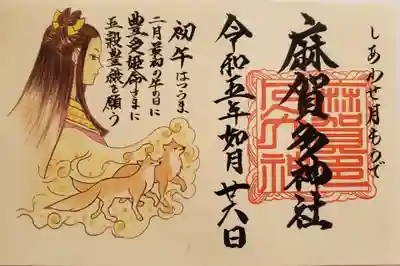 しあわせ月もうで
麻賀多神社
令和五年如月廿六日
初午はつうま
二月最初の午の日に
豊受姫命さまに
五穀豊穣を願う